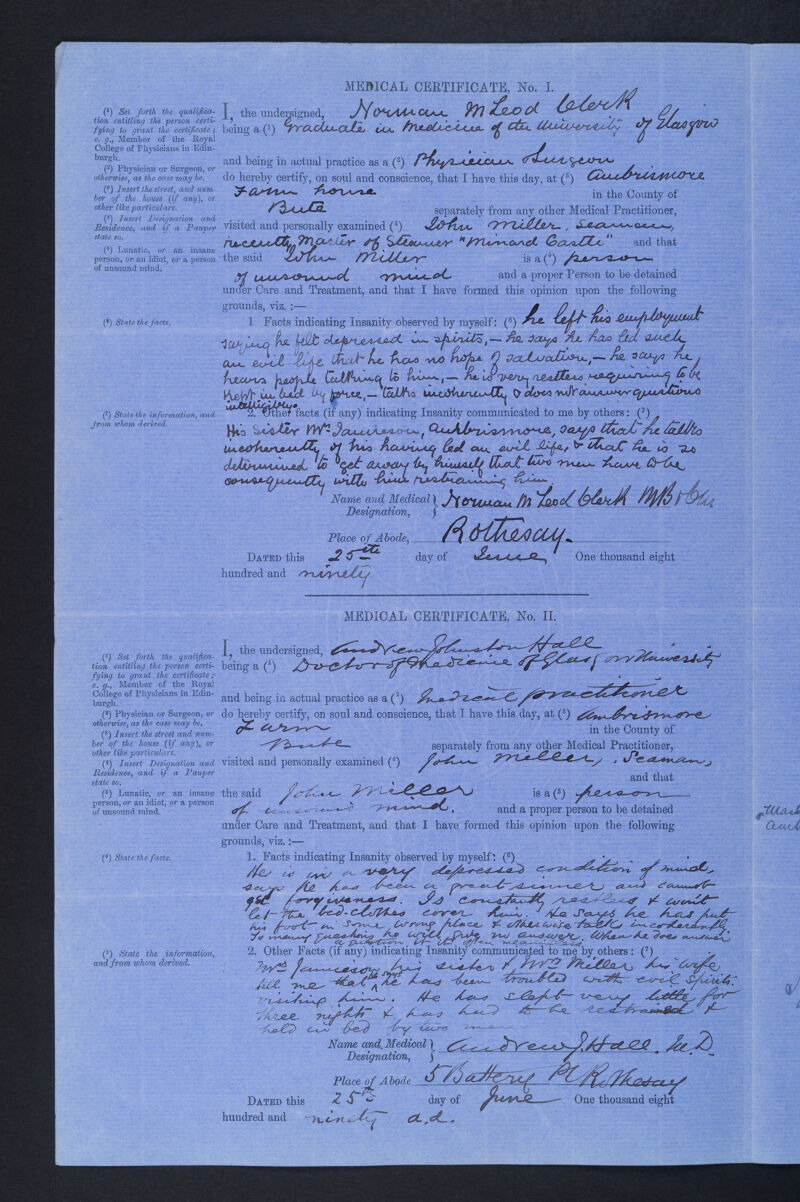 MEDICAL CERTIFICATE, No. I.
(¹) Set forth the qualifica-
tion entitling the person certi-
fying to grant the certificate;
e. g., Member of the Royal
College of Physicians in Edin-
burgh.
(²) Physician or Surgeon, or
otherwise, as the case may be.
(³) Insert the street, and num-
ber of the house (if any), or
other like particulars.
(⁴) Insert Designation and
Residence, and if a Pauper
state so.
(⁵) Lunatic, or an insane
person, or an idiot, or a person
of unsound mind.
(⁶) State the facts.
(⁷) State the information, and
from whom derived.
I, the undersigned, Norman McLeod Clerk
being a (¹) Graduate in Medicine of the University of Glasgow
and being in actual practice as a (²) Physician & Surgeon
do hereby certify, on soul and conscience, that I have this day, at (³) Ambrismore
Farm house in the County of
Bute separately from any other Medical Practitioner,
visited and personally examined (⁴) John Miller, Seaman,
recently Master of Steamer "Minard Castle" and that
the said John Miller is a (⁵) person
of unsound mind and a proper Person to be detained
under Care and Treatment, and that I have formed this opinion upon the following
grounds, viz.:—
1 Facts indicating Insanity observed by myself: (⁶) he left his employment
saying he felt depressed in spirits, – he says he has led such
an evil life that he has no hope of salvation, – he says he
hears people talking to him, – he is very restless requiring to be
kept in bed by force, – talks incoherently & does not answer questions
intelligibly.
2. Other facts (if any) indicating Insanity communicated to me by others: (⁷)
His Sister Mrs Jamieson, Ambrismore, says that he talks
incoherently of his having led an evil life, & that he is so
determined to get away by himself that two men have to be
consequently with him restraining him
Name and Medical Designation, } Norman McLeod Clerk MB & CM
Place of Abode, Rothesay.
DATED this 25th day of June One thousand eight
hundred and ninety
MEDICAL CERTIFICATE, No. II.
(¹) Set forth the qualifica-
tion entitling the person certi-
fying to grant the certificate;
e. g., Member of the Royal
College of Physicians in Edin-
burgh.
(²) Physician or Surgeon, or
otherwise, as the case may be.
(³) Insert the street and num-
ber of the house (if any), or
other like particulars.
(⁴) Insert Designation and
Residence, and if a Pauper
state so.
(⁵) Lunatic, or an insane
person, or an idiot, or a person
of unsound mind.
(⁶) State the facts.
(⁷) State the information,
and from whom derived.
I, the undersigned, Andrew Johnston Hall
being a (¹) Doctor of Medicine of Glasgow University
and being in actual practice as a (²) medical practitioner
do hereby certify, on soul and conscience, that I have this day, at (³) Ambrismore
Farm in the County of
Bute separately from any other Medical Practitioner,
visited and personally examined (⁴) John Miller, Seaman,
and that
the said John Miller is a (⁵) person
of unsound mind. and a proper person to be detained
under Care and Treatment, and that I have formed this opinion upon the following
grounds, viz.:—
1. Facts indicating Insanity observed by myself: (⁶)
He is in a very depressed condition of mind,
says he has been a great sinner and cannot
get forgiveness. Is constantly restless & wont
let the bed-clothes cover him. He says he has put
his foot in some wrong place & otherwise talks incoherently
To many questions he will give no answer. When he does answer
a question it is often meaningless
2. Other Facts (if any) indicating Insanity communicated to me by others: (⁷)
Mrs Jamieson his sister & Mrs Miller his wife
tell me that he has been troubled with evil spirits
visiting him. He has slept very little for
three nights & has had to be restrained &
held in bed by two men
Name and Medical Designation, } Andrew J. Hall. M.D.
Place of Abode 5 Battery Pl Rothesay
DATED this 25th day of June One thousand eight
hundred and ninety a.d.